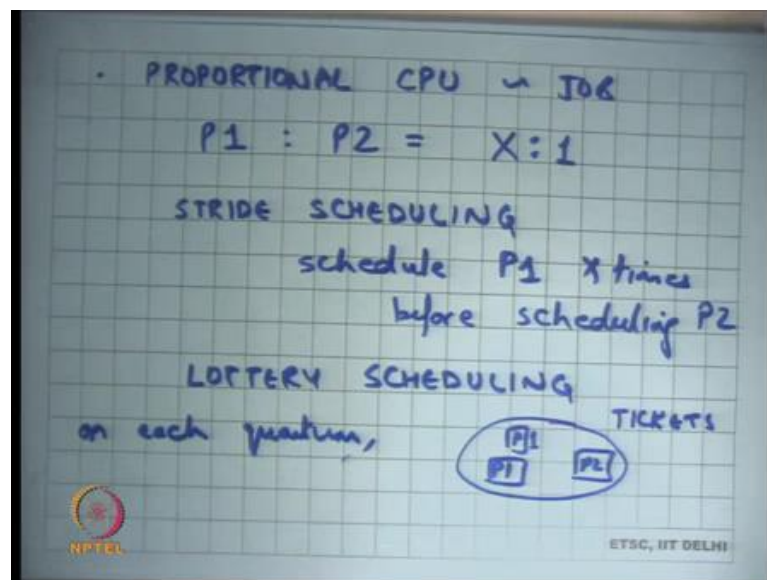 · PROPORTIONAL CPU ~ JOB
P1 : P2 = X : 1
STRIDE SCHEDULING
schedule P1 X times
before scheduling P2
LOTTERY SCHEDULING
TICKETS
on each quantum,
P1
P1 P2
NPTEL
ETSC, IIT DELHI